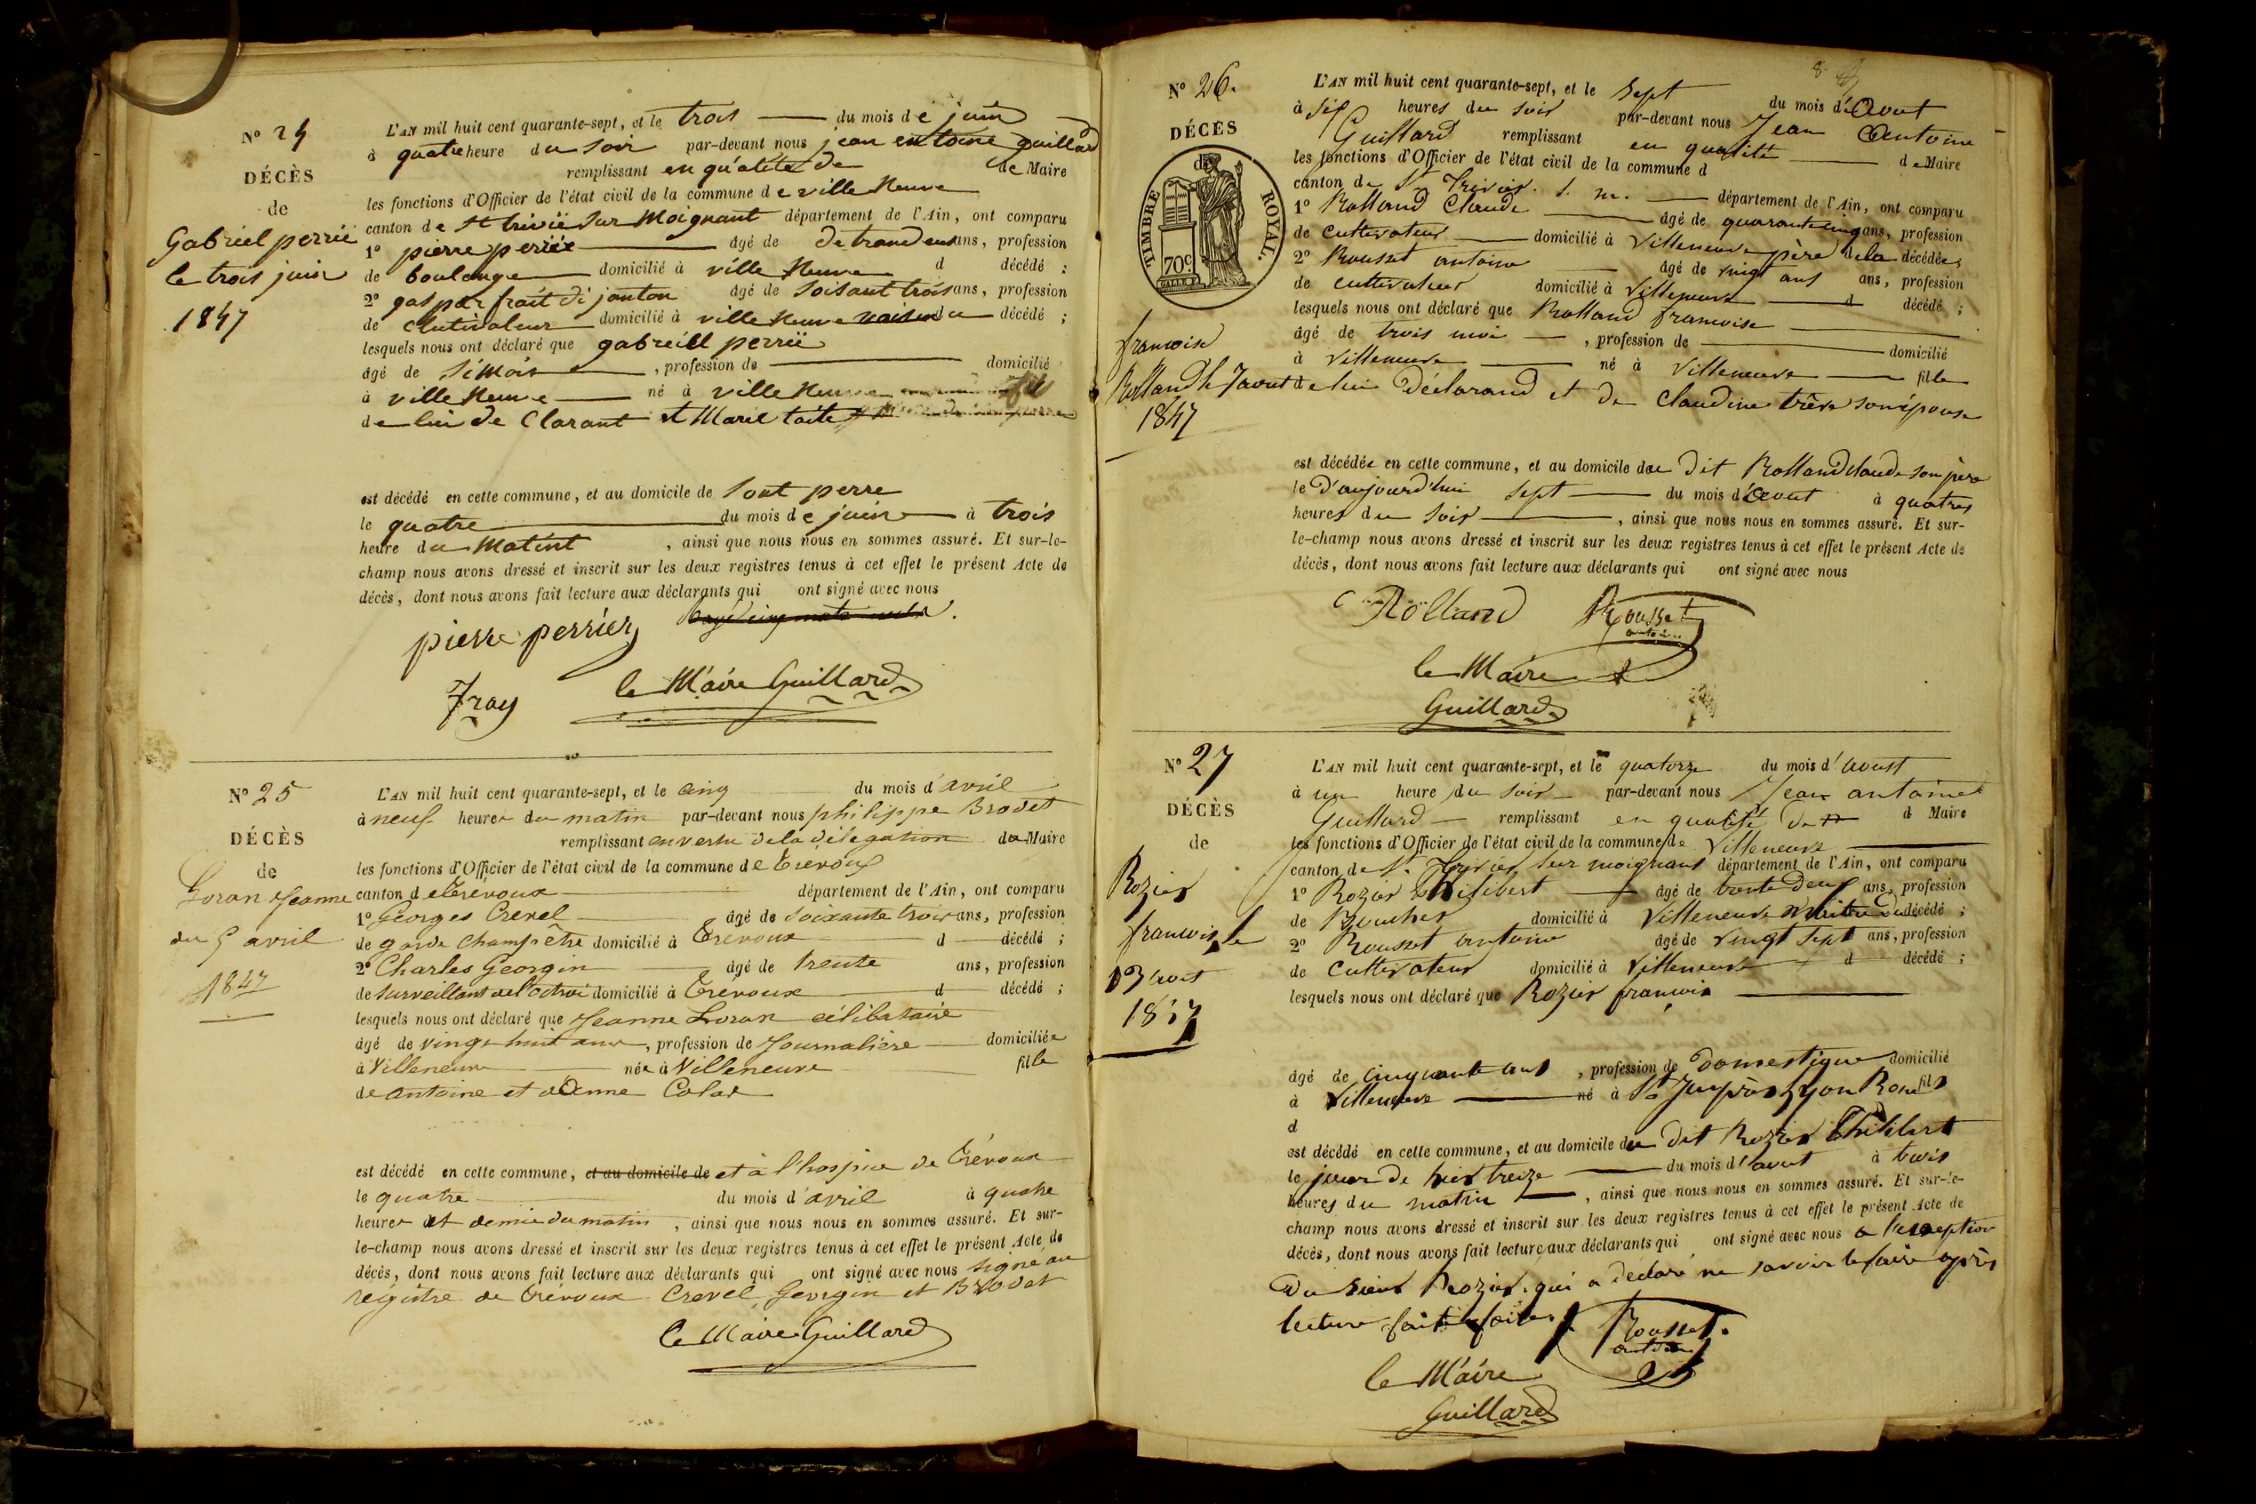 N° 24
DÉCÈS
de
Gabriel perrié
le trois juin
1847
L'AN mil huit cent quarante-sept, et le trois du mois de juin
à quatre heure du soir par-devant nous jean entoine guillard
remplissant en quálité de de Maire
les fonctions d'Officier de l'état civil de la commune de ville Neuve
canton de St trivié sur Moignant département de l'Ain, ont comparu
1° pierre perriée âgé de de trande ans, profession
de boulange domicilié à ville Neuve d décédé ;
2° gaspar frait di janton âgé de soisant trois ans, profession
de domicilié à ville Neuve du décédé ;
lesquels nous ont déclaré que gabreill perrié
âgé de si Mois, profession de domicilié
à ville Neuve né à ville Neuve fil
de lui de Clarant et Marie
est décédé en cette commune, et au domicile de sont perre
le quatre du mois de juin à trois
heure du Matint, ainsi que nous nous en sommes assuré. Et sur-le-
champ nous avons dressé et inscrit sur les deux registres tenus à cet effet le présent Acte de
décès, dont nous avons fait lecture aux déclarants qui ont signé avec nous
pierre perrier
Fray le Maire Guillard
N° 25
DÉCÈS
de
Loran Jeanne
du 5 avril
1847
L'AN mil huit cent quarante-sept, et le cinq du mois d'avril
à neuf heures du matin par-devant nous philippe Brodet
remplissant en vertu de la délégation du Maire
les fonctions d'Officier de l'état civil de la commune de Trévoux
canton de Trévoux département de l'Ain, ont comparu
1° Georges Crevel âgé de soixante trois ans, profession
de garde champêtre domicilié à Trevoux d décédé ;
2° Charles Georgin âgé de trente ans, profession
de surveillant de l'octroi domicilié à Trevoux d décédé ;
lesquels nous ont déclaré que Jeanne Loran célibataire
âgé de vingt huit ans, profession de Journalière domiciliée
à Villeneuve née à Villeneuve fille
de antoine et d'Anne Colas
est décédé en cette commune, et au domicile de et à l'hospice de Trévoux
le quatre du mois d'avril à quatre
heures et demie du matin, ainsi que nous nous en sommes assuré. Et sur-
le-champ nous avons dressé et inscrit sur les deux registres tenus à cet effet le présent Acte de
décès, dont nous avons fait lecture aux déclarants qui ont signé avec nous signé au
régistre de Trévoux Crevel, Georgin et Brodet
le Maire Guillard
N° 26.
DÉCÈS
de
TIMBRE ROYAL.
70c.
francoise
Rolland le 7 aout
1847
L'AN mil huit cent quarante-sept, et le sept du mois d'Aout
à six heures du soir par-devant nous Jean Antoine
Guillard remplissant en qualité de Maire
les fonctions d'Officier de l'état civil de la commune d
canton de St Trivier s. m. département de l'Ain, ont comparu
1° Rolland Claude âgé de quarante cinq ans, profession
de cultivateur domicilié à Villeneuve père de la décédée;
2° Rousset antoine âgé de vingt ans ans, profession
de cultivateur domicilié à Villeneuve d décédé ;
lesquels nous ont déclaré que Rolland francoise
âgé de trois moi, profession de domicilié
à Villeneuve né à Villeneuve fille
de lui déclarand et de Claudine trève son épouse
est décédée en cette commune, et au domicile du dit Rolland claude son père
le d'aujourd'hui sept du mois d'Aout à quatres
heures du soir, ainsi que nous nous en sommes assuré. Et sur-
le-champ nous avons dressé et inscrit sur les deux registres tenus à cet effet le présent Acte de
décès, dont nous avons fait lecture aux déclarants qui ont signé avec nous
C Rolland Rousset
antoine
le Maire
Guillard
N° 27
DÉCÈS
de
Rozier
francois le
13 aout
1847
L'AN mil huit cent quarante-sept, et le quatorze du mois d'aoust
à un heure du soir par-devant nous Jean antoine
Guillard remplissant en qualité de d Maire
les fonctions d'Officier de l'état civil de la commune de Villeneuve
canton de St. Trivier sur moignant département de l'Ain, ont comparu
1° Rozier Philibert âgé de trente deux ans, profession
de Boucher domicilié à Villeneuve du décédé ;
2° Rousset antoine âgé de vingt sept ans, profession
de cultivateur domicilié à Villeneuve d décédé ;
lesquels nous ont déclaré que Rozier francois
âgé de cinquante ans, profession de domestique domicilié
à Villeneuve né à Lyon Rone fils
d
est décédé en cette commune, et au domicile du dit Rozier Philibert
le jour de hier treize du mois d'aout à trois
heures du matin, ainsi que nous nous en sommes assuré. Et sur-le-
champ nous avons dressé et inscrit sur les deux registres tenus à cet effet le présent Acte de
décès, dont nous avons fait lecture aux déclarants qui ont signé avec nous a l'exeption
du sieur Rozier qui a declaré ne savoir le faire après
lecture faite
Rousset.
antoine
le Maire
Guillard